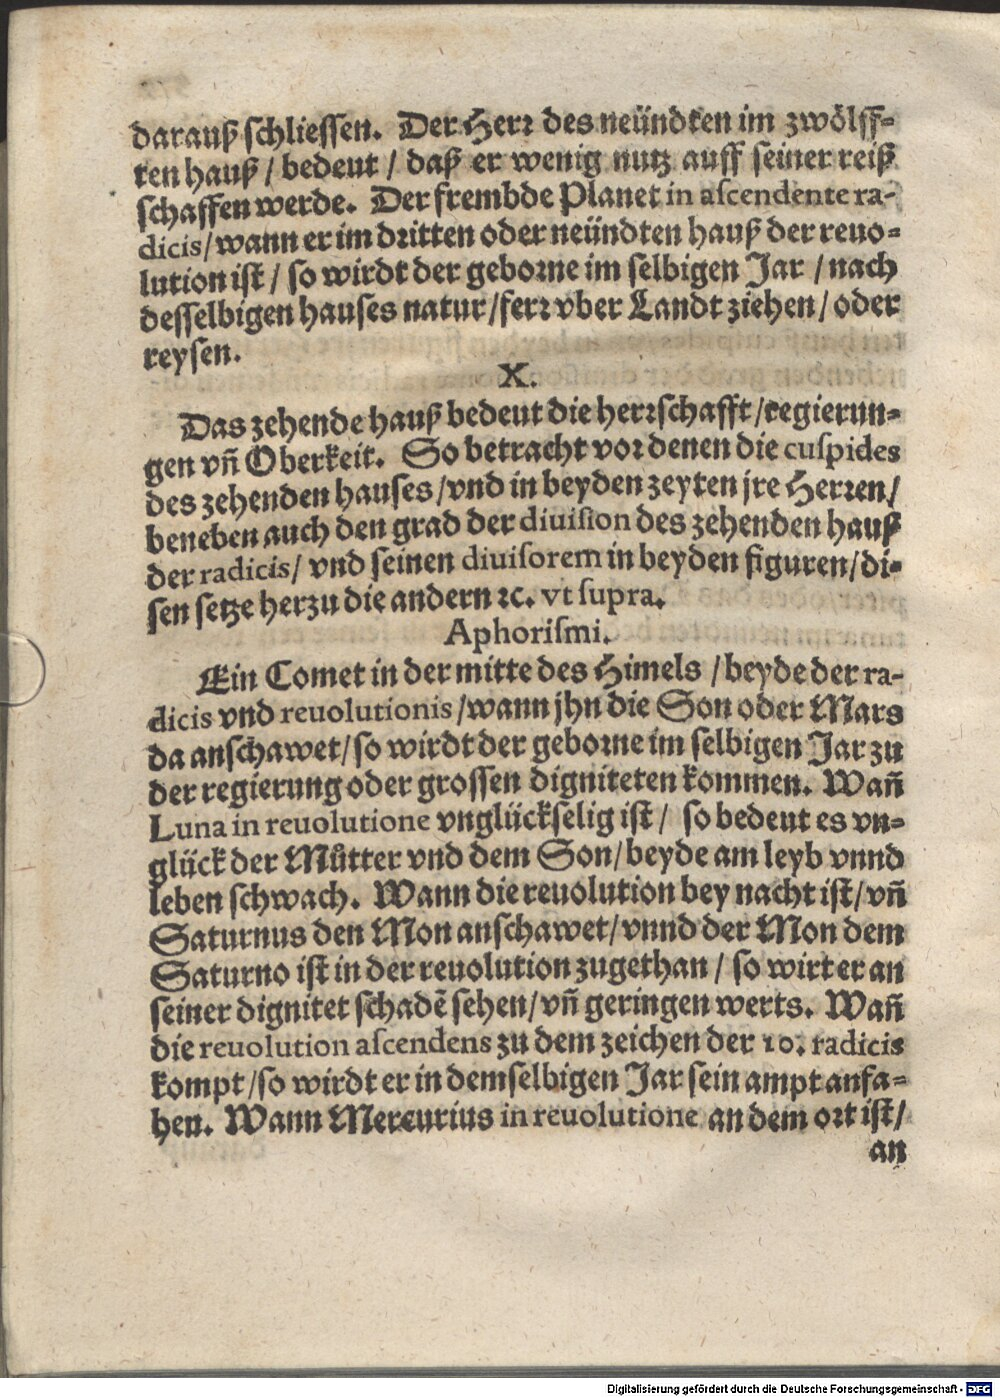 darauß schliessen. Der Herr des neündten im zwölff-
ten hauß / bedeut / daß er wenig nutz auff seiner reiß
schaffen werde. Der frembde Planet in ascendente ra-
dicis/ wann er im dritten oder neündten hauß der reuo-
lution ist / so wirdt der geborne im selbigen Jar / nach
desselbigen hauses natur/ ferr vber Landt ziehen/ oder
reysen.
X.
Das zehende hauß bedeut die herrschafft/ regierun-
gen vñ Oberkeit. So betracht vor denen die cuspides
des zehenden hauses/ vnd in beyden zeyten jre Herren/
beneben auch den grad der diuision des zehenden hauß
der radicis/ vnd seinen diuisorem in beyden figuren/ di-
sen setze herzu die andern ꝛc. vt supra.
Aphorismi.
Ein Comet in der mitte des Himels / beyde der ra-
dicis vnd reuolutionis/ wann jhn die Son oder Mars
da anschawet/ so wirdt der geborne im selbigen Jar zu
der regierung oder grossen digniteten kommen. Wañ
Luna in reuolutione vnglückselig ist / so bedeut es vn-
glück der Můtter vnd dem Son/ beyde am leyb vnnd
leben schwach. Wann die reuolution bey nacht ist/ vñ
Saturnus den Mon anschawet/ vnnd der Mon dem
Saturno ist in der reuolution zugethan / so wirt er an
seiner dignitet schadē sehen/ vñ geringen werts. Wañ
die reuolution ascendens zu dem zeichen der 10. radicis
kompt/ so wirdt er in demselbigen Jar sein ampt anfa-
hen. Wann Mercurius in reuolutione an dem ort ist/
an
Digitalisierung gefördert durch die Deutsche Forschungsgemeinschaft - DFG